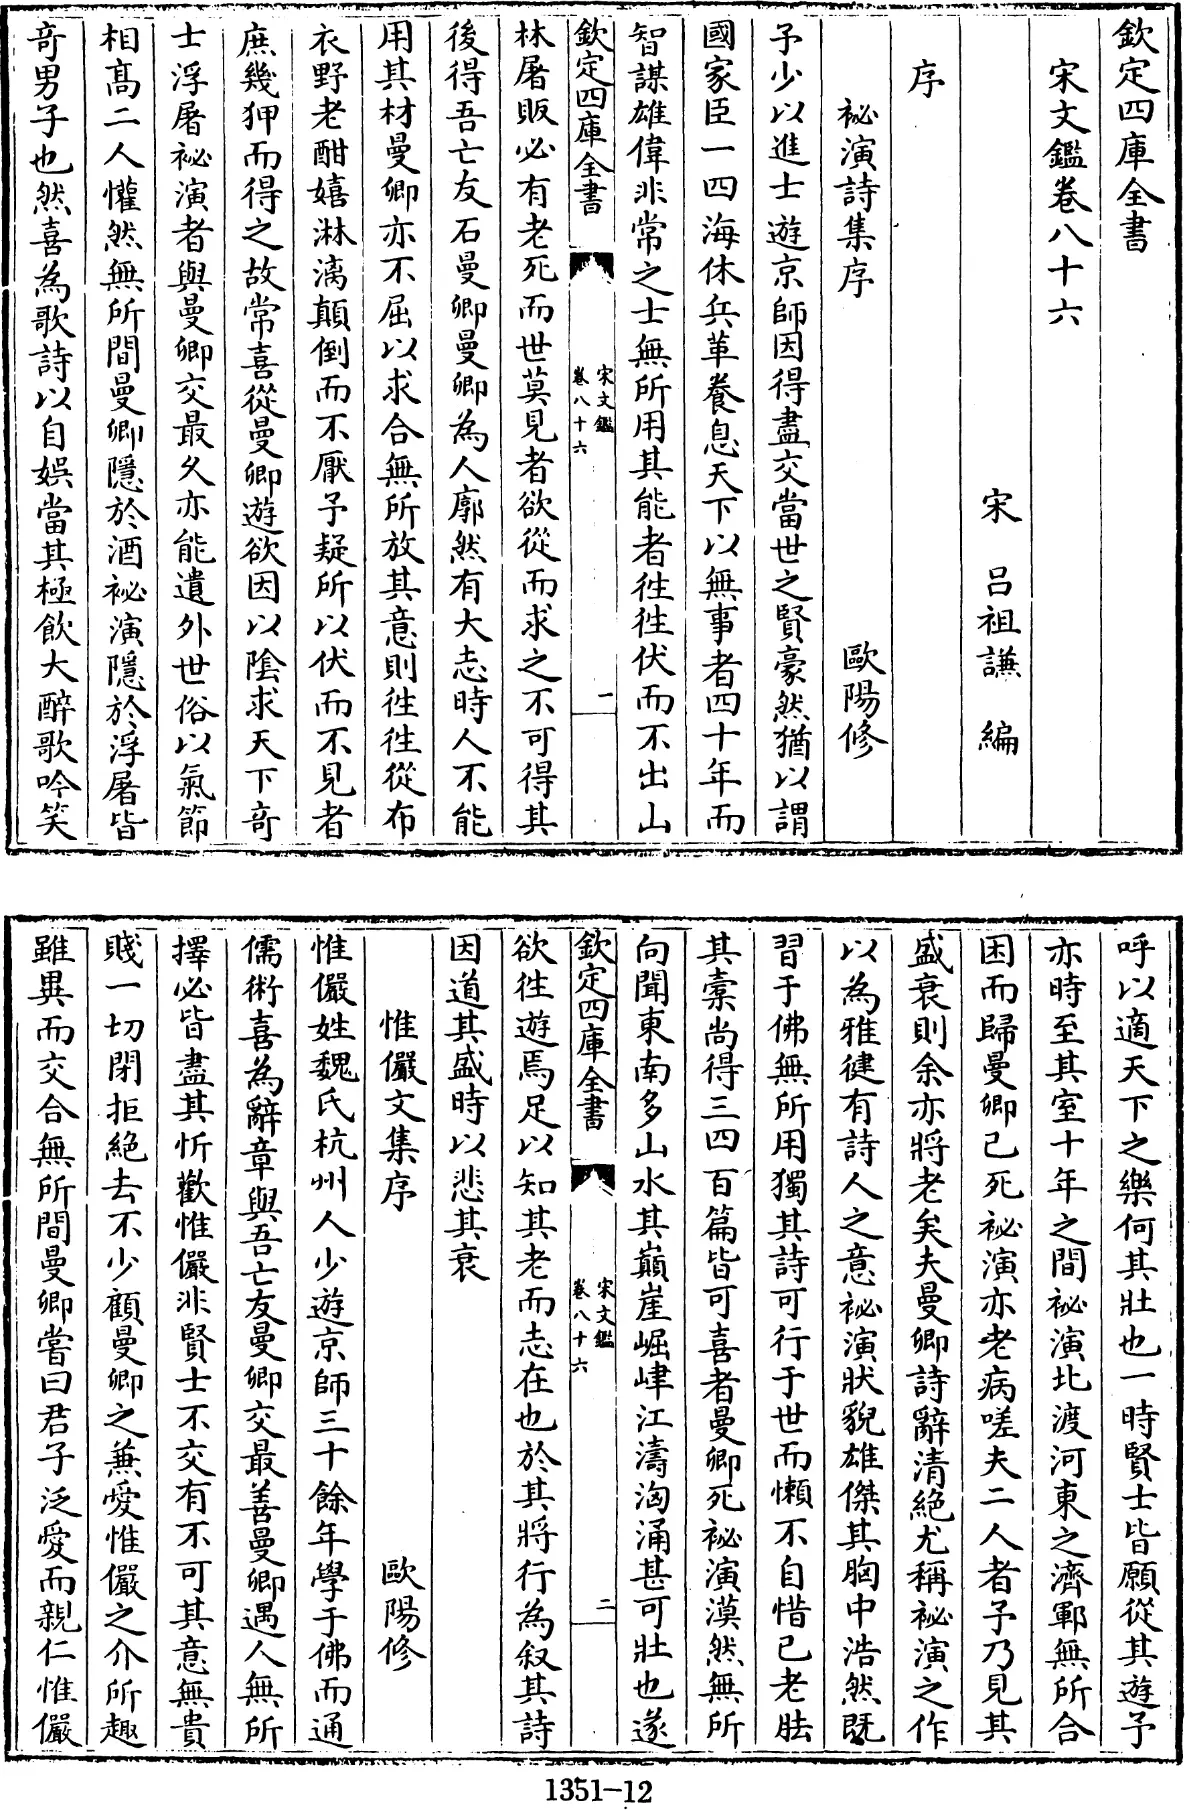 欽定四庫全書
宋文鑑卷八十六
宋 呂祖謙 編
序
祕演詩集序 歐陽修
予少以進士遊京師因得盡交當世之賢豪然猶以謂
國家臣一四海休兵革養息天下以無事者四十年而
智謀雄偉非常之士無所用其能者往往伏而不出山
欽定四庫全書
宋文鑑
卷八十六
一
林屠販必有老死而世莫見者欲從而求之不可得其
後得吾亡友石曼卿曼卿為人廓然有大志時人不能
用其材曼卿亦不屈以求合無所放其意則往往從布
衣野老酣嬉淋漓顛倒而不厭予疑所以伏而不見者
庶幾狎而得之故常喜從曼卿遊欲因以陰求天下奇
士浮屠祕演者與曼卿交最久亦能遺外世俗以氣節
相高二人懽然無所間曼卿隱於酒祕演隱於浮屠皆
奇男子也然喜為歌詩以自娛當其極飲大醉歌吟笑
呼以適天下之樂何其壯也一時賢士皆願從其遊予
亦時至其室十年之間祕演北渡河東之濟鄆無所合
困而歸曼卿已死祕演亦老病嗟夫二人者予乃見其
盛衰則余亦將老矣夫曼卿詩辭清絶尤稱祕演之作
以為雅健有詩人之意祕演狀貌雄傑其胸中浩然既
習于佛無所用獨其詩可行于世而懶不自惜已老胠
其橐尚得三四百篇皆可喜者曼卿死祕演漠然無所
向聞東南多山水其巔崖崛峍江濤洶涌甚可壯也遂
欽定四庫全書
宋文鑑
卷八十六
二
欲往遊焉足以知其老而志在也於其將行為叙其詩
因道其盛時以悲其衰
惟儼文集序 歐陽修
惟儼姓魏氏杭州人少遊京師三十餘年學于佛而通
儒術喜為辭章與吾亡友曼卿交最善曼卿遇人無所
擇必皆盡其忻歡惟儼非賢士不交有不可其意無貴
賤一切閉拒絶去不少顧曼卿之兼愛惟儼之介所趣
雖異而交合無所間曼卿嘗曰君子泛愛而親仁惟儼
1351-12